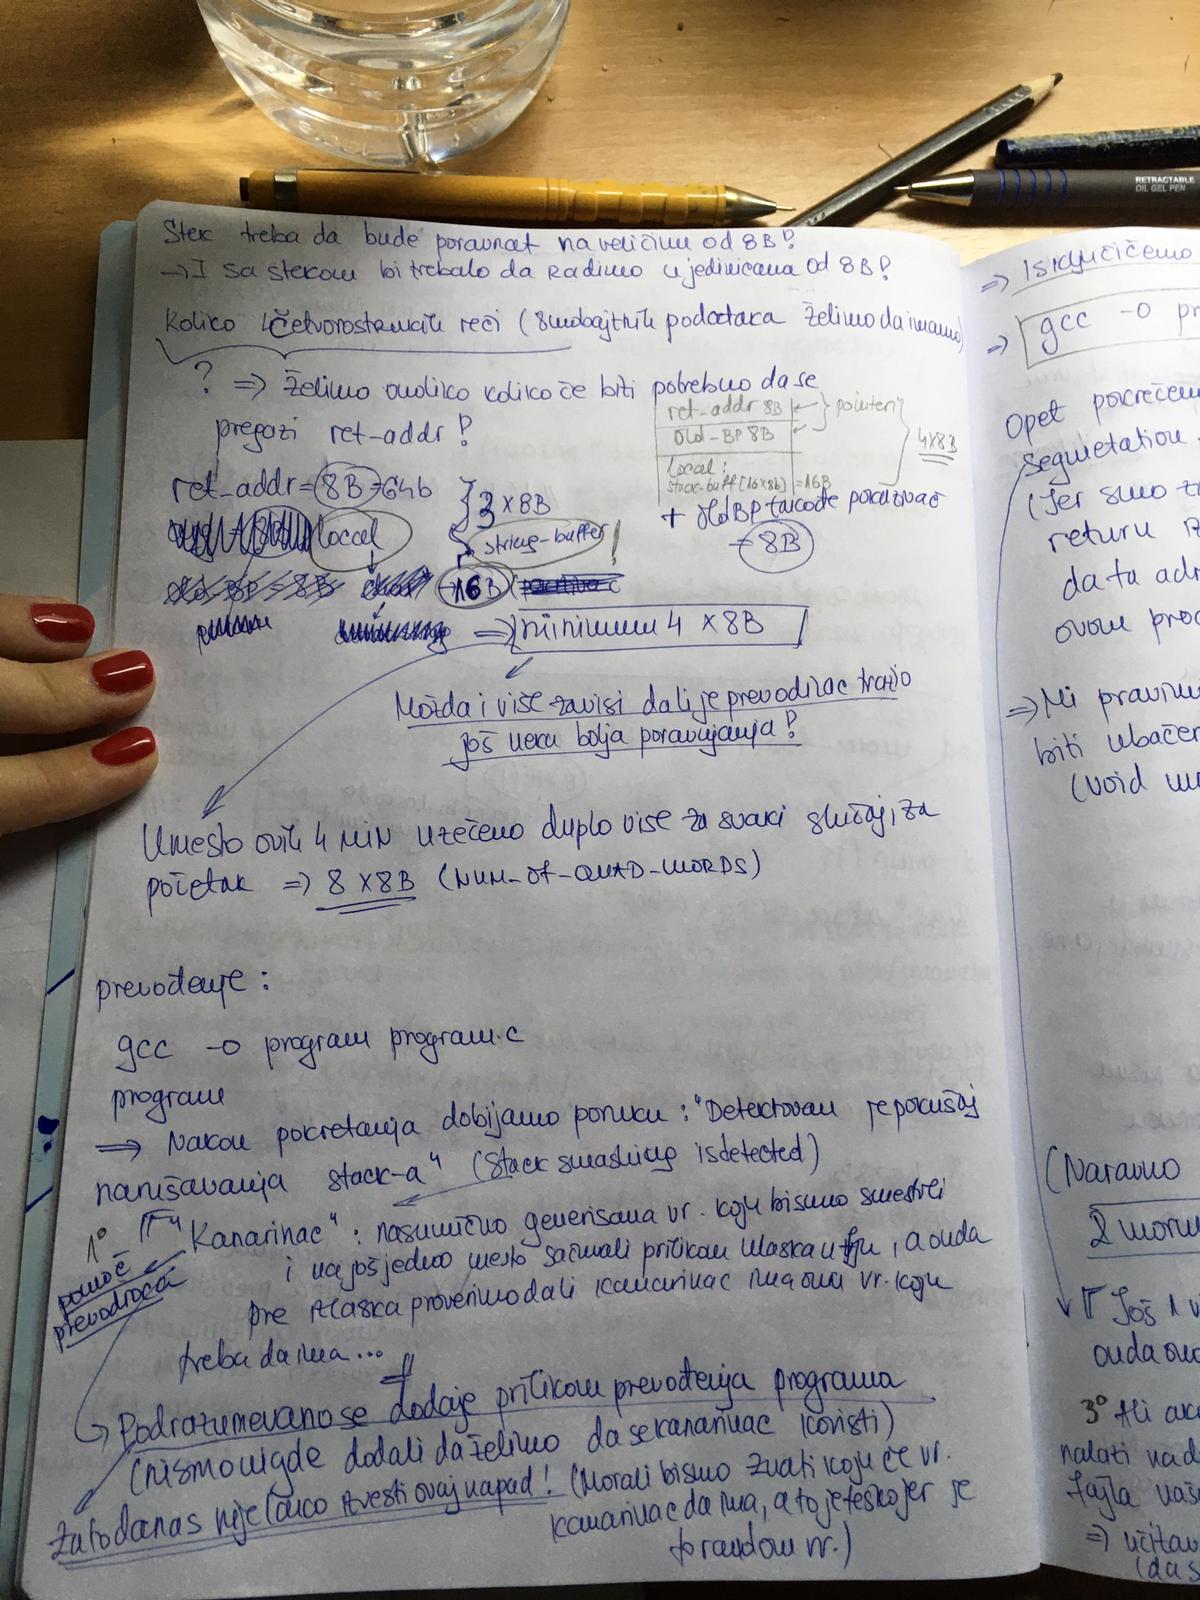 RETRACTABLE
OIL GEL PEN
Stek treba da bude poravnat na veličinu od 8B!
→ I sa stekom bi trebalo da radimo u jedinicama od 8B!
Koliko četvorostrukih reči (8mobajtnih podataka želimo da imamo)
? => Želimo onoliko koliko će biti potrebno da se
pregazi ret-addr!
ret-addr 8B
old-BP 8B
pointeri
local:
stack-buff (16x8b) = 16B
4x8B
ret-addr = 8B = 64b
3 x 8B
+ old BP takođe pointer
= 8B
local
string-buffer!
→ 16B
=> minimum 4 x 8B
Možda i više zavisi da li je prevodilac tražio
još neka bolja poravnjanja!
Umesto ovih 4 MIN uzećemo duplo više za svaki slučaj, za
početak => 8 x 8B (NUM-OF-QUAD-WORDS)
prevođenje:
gcc -o program program.c
program
=> Nakon pokretanja dobijamo poruku: "Detektovan je pokušaj
narušavanja stack-a" (Stack smashing is detected)
1° "Kanarinac": nasumično generisana vr. koju bismo smestili
i na još jedno mesto sačuvali prilikom ulaska u fju, a onda
pre izlaska proverimo da li kanarinac ima onu vr. koju
treba da ima...
pomoć
prevodioca
Podrazumevano se dodaje prilikom prevođenja programa
(nismo nigde dodali da želimo da se kanarinac koristi)
Zato danas nije lako izvesti ovaj napad! (Morali bismo znati koju će vr.
kanarinac da ima, a to je teško jer je
to random vr.)
=> Isključićemo
=> gcc -o pr
Opet pokrećem
Segmetation
(Jer smo
return
da ta adr
ovom proc
=> Mi pravimo
biti ubačen
(void
(Naravno
2 moru
Još 1
onda ovo
3° Ali ako
nalazi na d
fajla
=> učitav
(da s